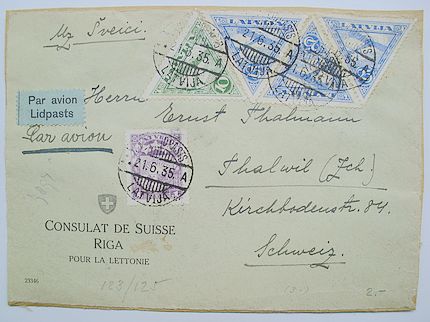 Uz Šveici.
LATVIJA
LATVIJA
21.6.35. A
LATVIJA
Par avion
Lidpasts
Par avion
Herrn
Ernst Thalmann
21.6.35 A
LATVIJA
Thalwil (Zch.)
Kirchbodenstr. 84.
Schweiz.
CONSULAT DE SUISSE
RIGA
POUR LA LETTONIE
23346
123/125
2.-